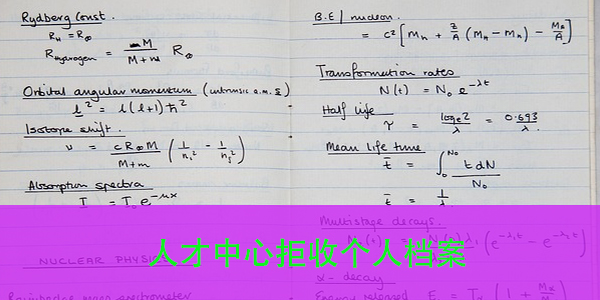 Rydberg Const.
R_H = R_∞
R_Hydrogen = M / (M + m) R_∞
Orbital angular momentum (intrinsic a.m. s)
l² = l(l+1)ħ²
Isotope shift.
ν = c R_∞ M / (M + m) (1/n₁² − 1/n₂²)
Absorption spectra
I = I₀ e^(−μx)
NUCLEAR PHYSICS
B.E / nucleon.
= c² [M_n + Z/A (M_H − M_n) − M_A/A]
Transformation rates
N(t) = N₀ e^(−λt)
Half life
τ = log_e 2 / λ = 0.693 / λ.
Mean life time
t̄ = ∫₀^N₀ t dN / N₀
t̄ = 1/λ
Multistage decays.
(e^(−λ₁t) − e^(−λ₂t))
α - decay
Energy released
人才中心拒收个人档案